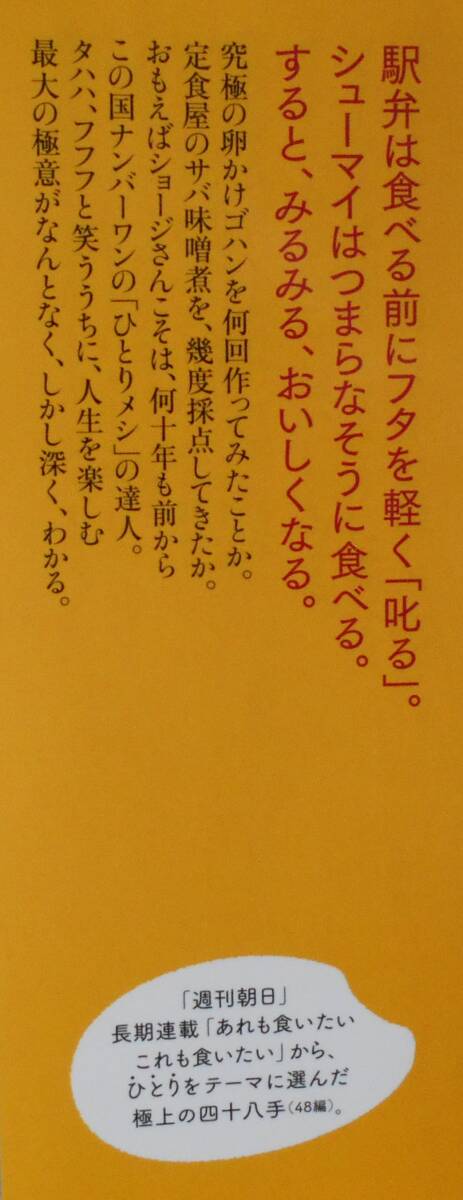 駅弁は食べる前にフタを軽く「叱る」。
シューマイはつまらなそうに食べる。
すると、みるみる、おいしくなる。
究極の卵かけゴハンを何回作ってみたことか。
定食屋のサバ味噌煮を、幾度採点してきたか。
おもえばショージさんこそは、何十年も前から
この国ナンバーワンの「ひとりメシ」の達人。
タハハ、フフフと笑ううちに、人生を楽しむ
最大の極意がなんとなく、しかし深く、わかる。
「週刊朝日」
長期連載「あれも食いたい
これも食いたい」から、
ひとりをテーマに選んだ
極上の四十八手(48編)。